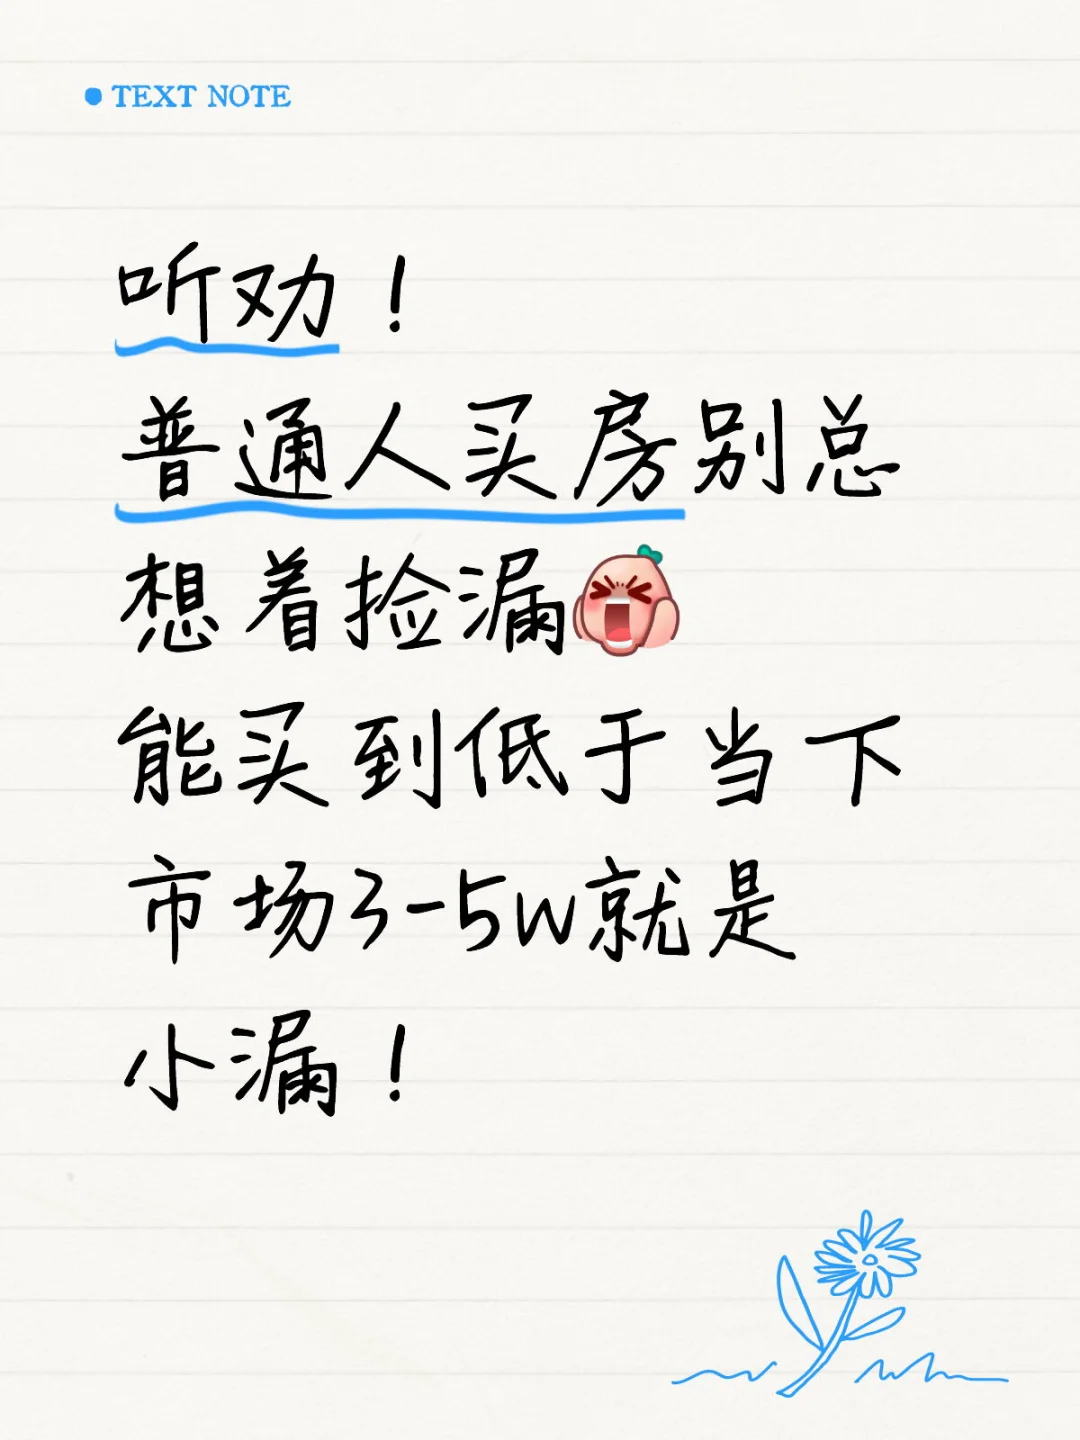 TEXT NOTE
听劝！
普通人买房别总
想着捡漏
能买到低于当下
市场3-5w就是
小漏！